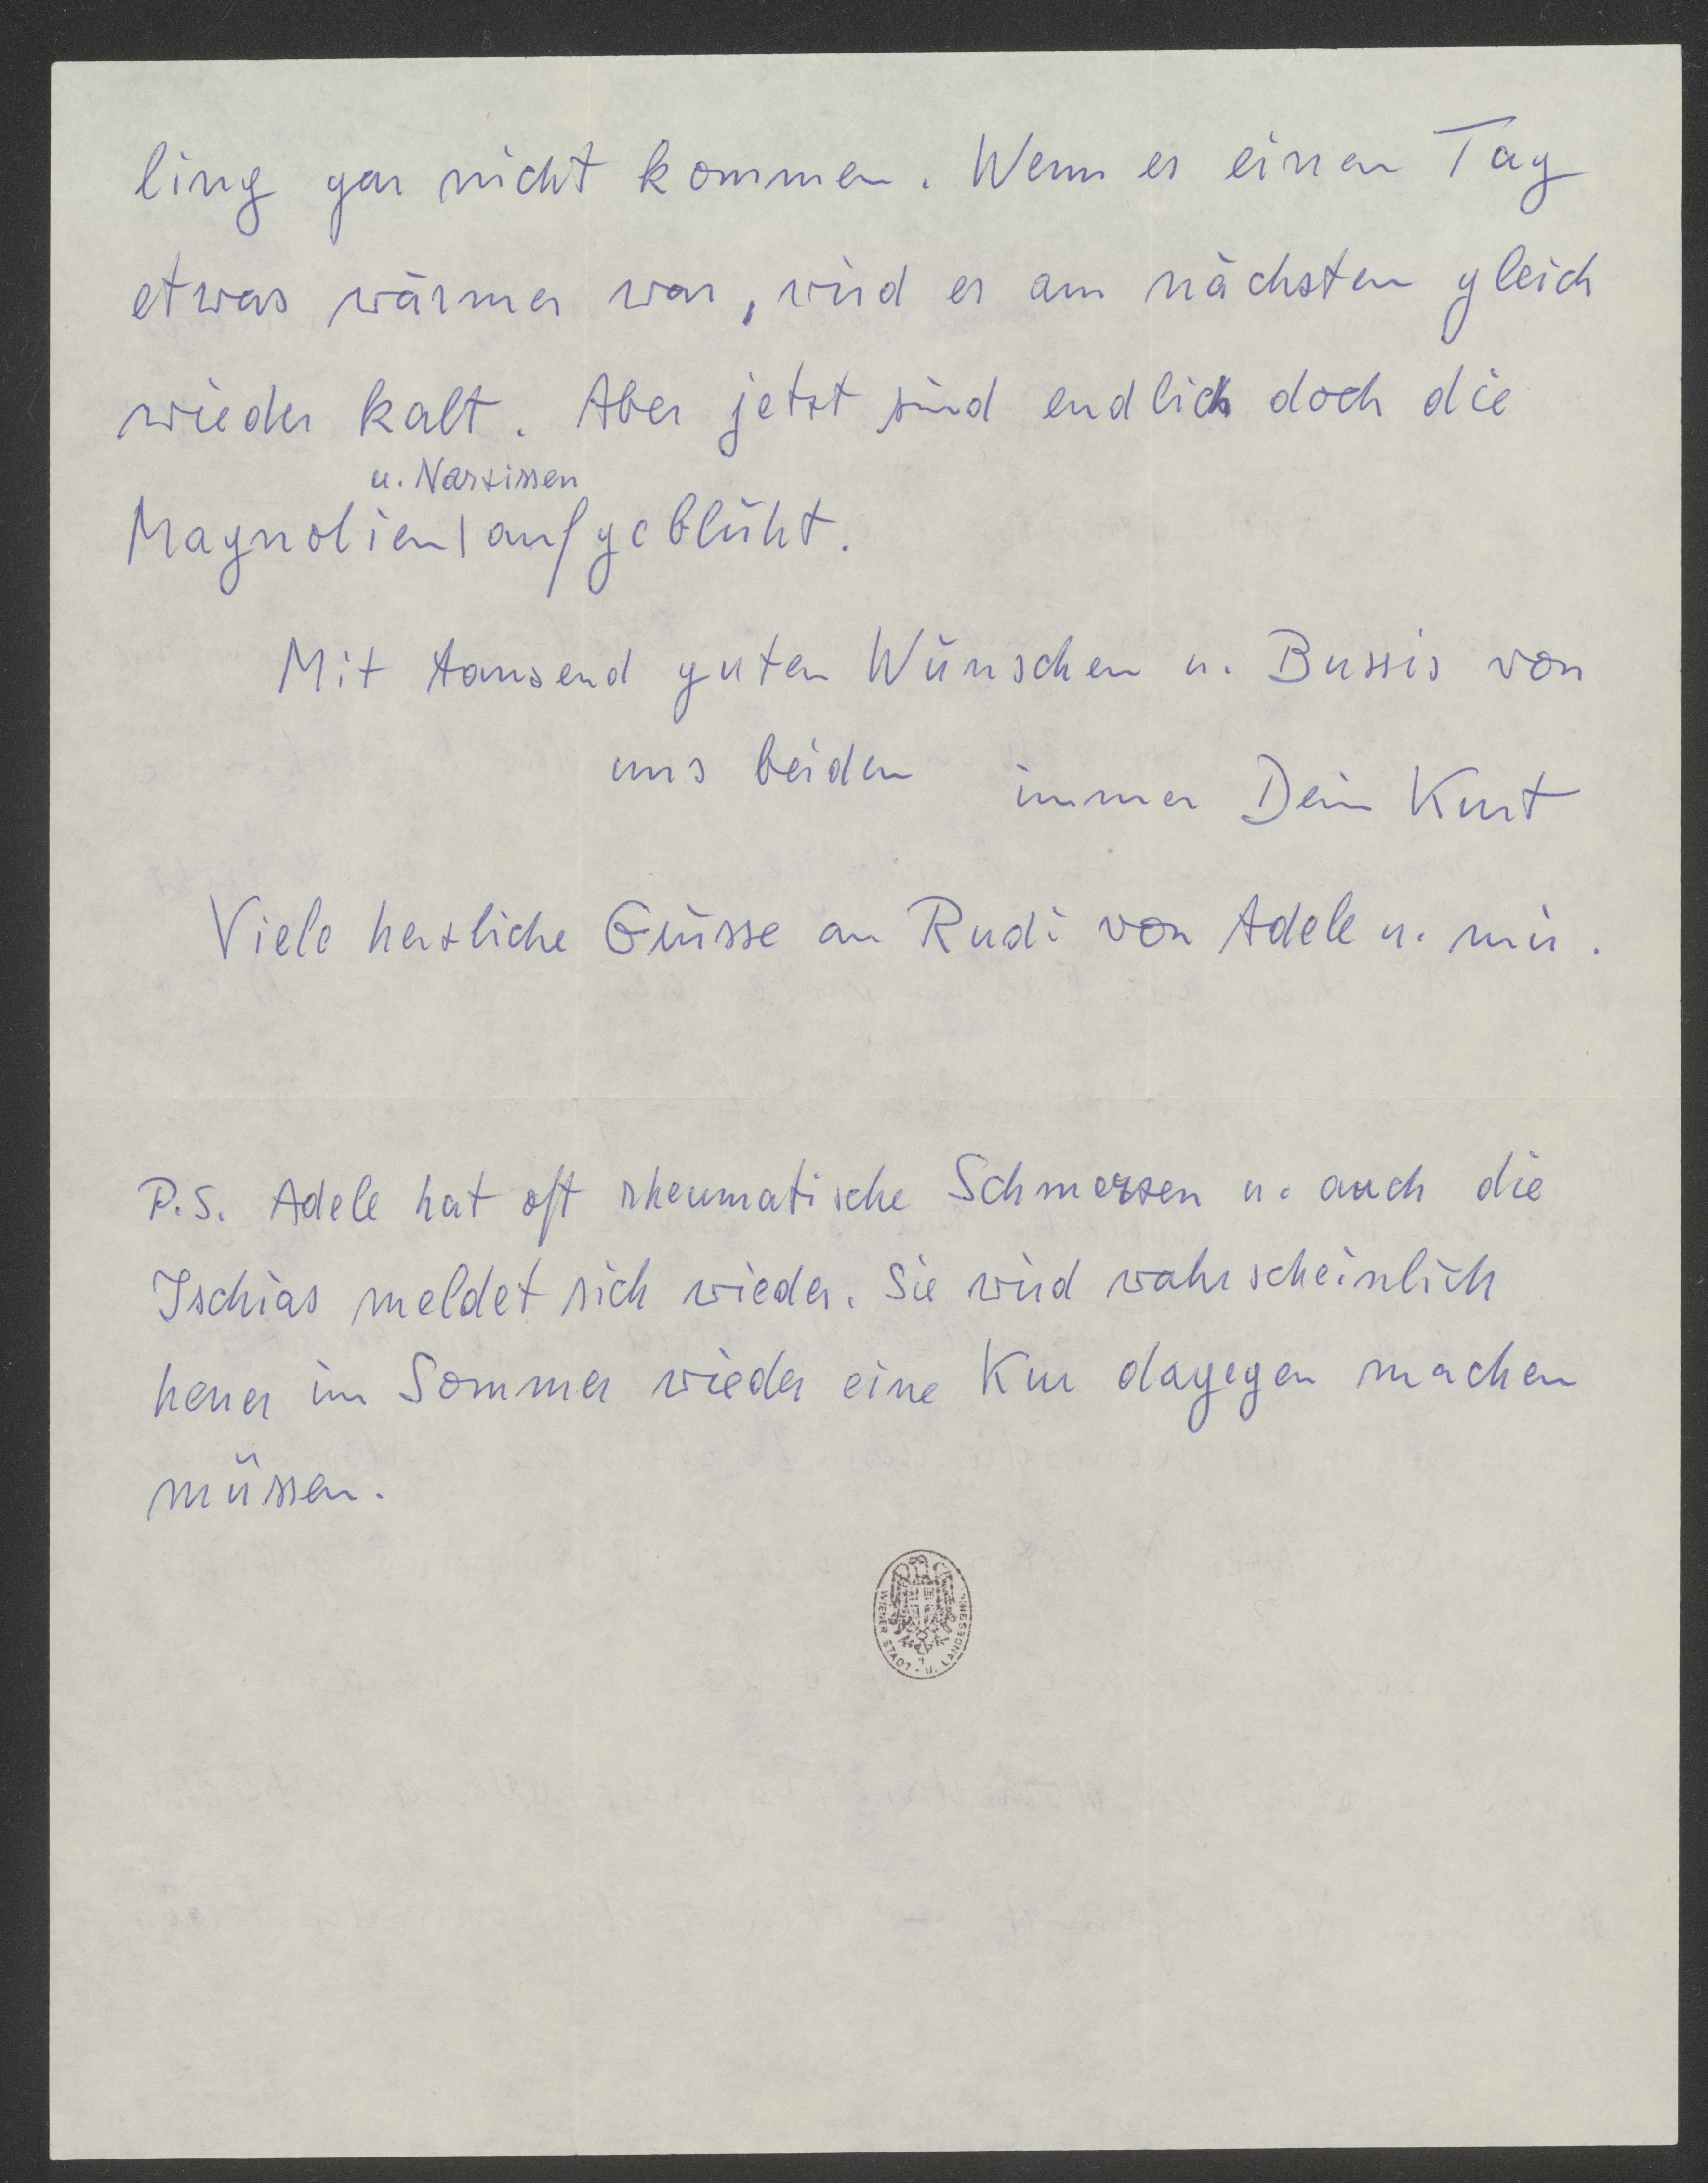 ling gar nicht kommen. Wenn es einen Tag
etwas wärmer war, wird es am nächsten gleich
wieder kalt. Aber jetzt sind endlich doch die
u. Narzissen
Magnolien | aufgeblüht.
Mit tausend guten Wünschen u. Bussis von
uns beiden immer Dein Kurt
Viele herzliche Grüsse an Rudi von Adele u. mir.
P.S. Adele hat oft rheumatische Schmerzen u. auch die
Ischias meldet sich wieder. Sie wird wahrscheinlich
heuer im Sommer wieder eine Kur dagegen machen
müssen.
WIENER STADT- U. LANDESBIBL.